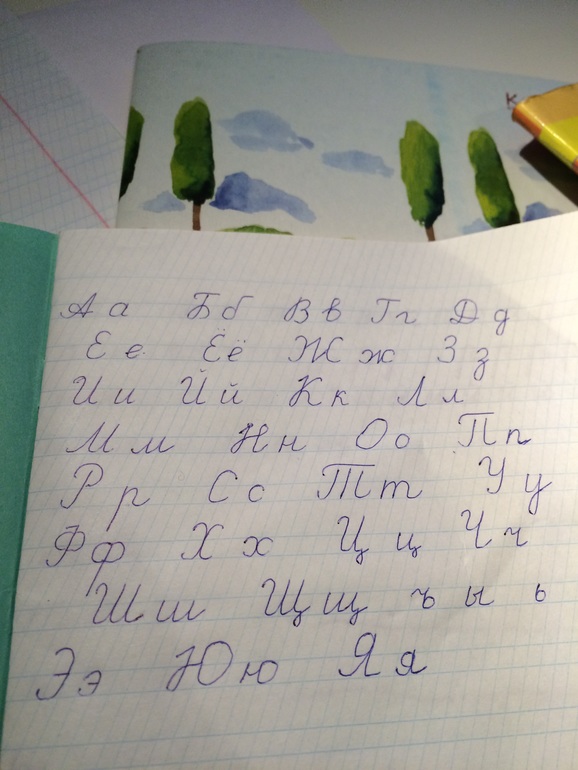 К
Аа Бб Вв Гг Дд
Ее Ёё Жж Зз
Ии Йй Кк Лл
Мм Нн Оо Пп
Рр Сс Тт Уу
Фф Хх Цц Чч
Шш Щщ ъ ы ь
Ээ Юю Яя